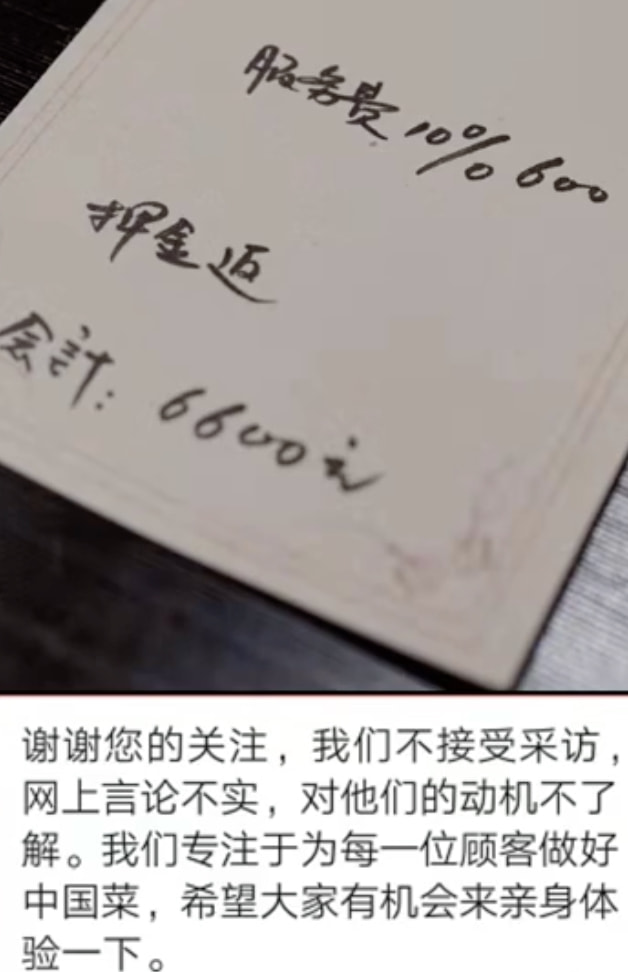 服务费10% 600
押金返
会计: 6600元
谢谢您的关注，我们不接受采访，
网上言论不实，对他们的动机不了
解。我们专注于为每一位顾客做好
中国菜，希望大家有机会来亲身体
验一下。